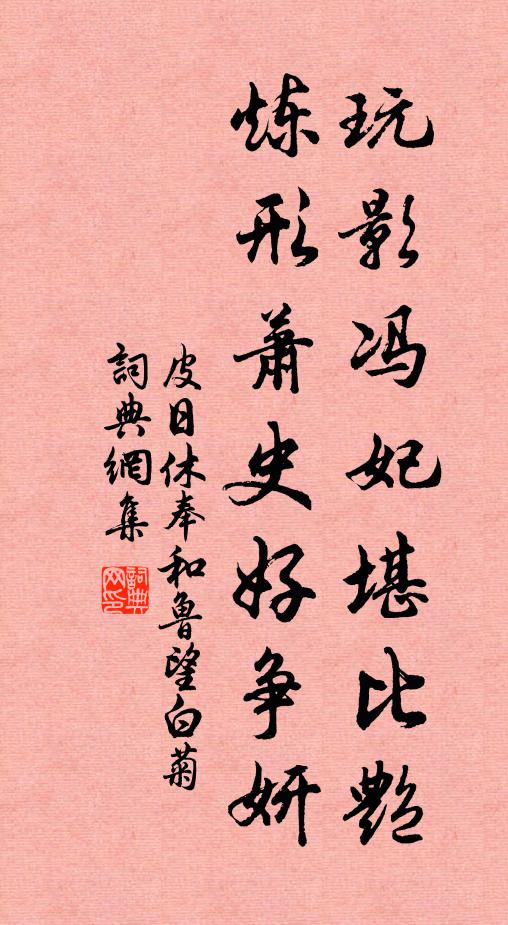 玩影冯妃堪比艷
炼形萧史好争妍
皮日休奉和魯望白菊
詞典網集
詞典网印